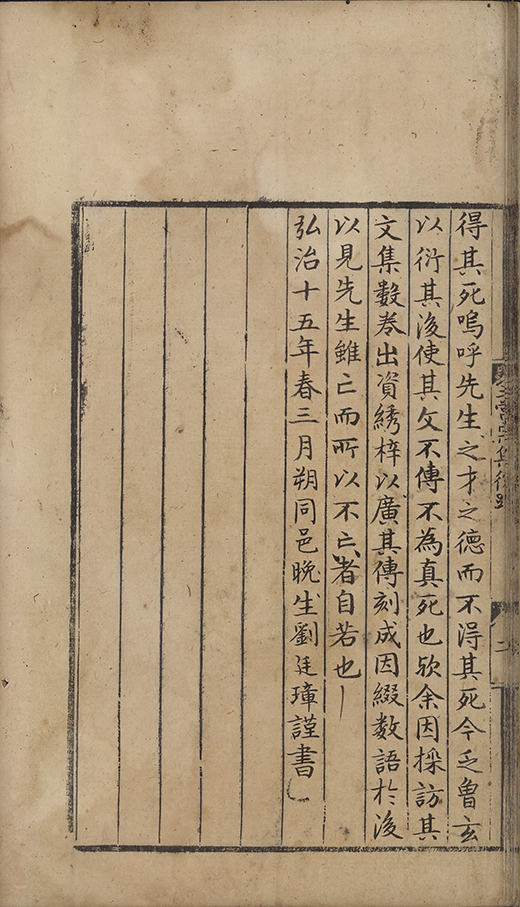 得其死嗚呼先生之才之德而不淂其死今乏曾玄
以衍其後使其文不傳不為真死也欤余因採訪其
文集数卷出資綉梓以廣其傳刻成因綴数語扵後
以見先生雖亡而所以不亡者自若也
弘治十五年春三月朔同邑晚生劉廷璋謹書
集後
二